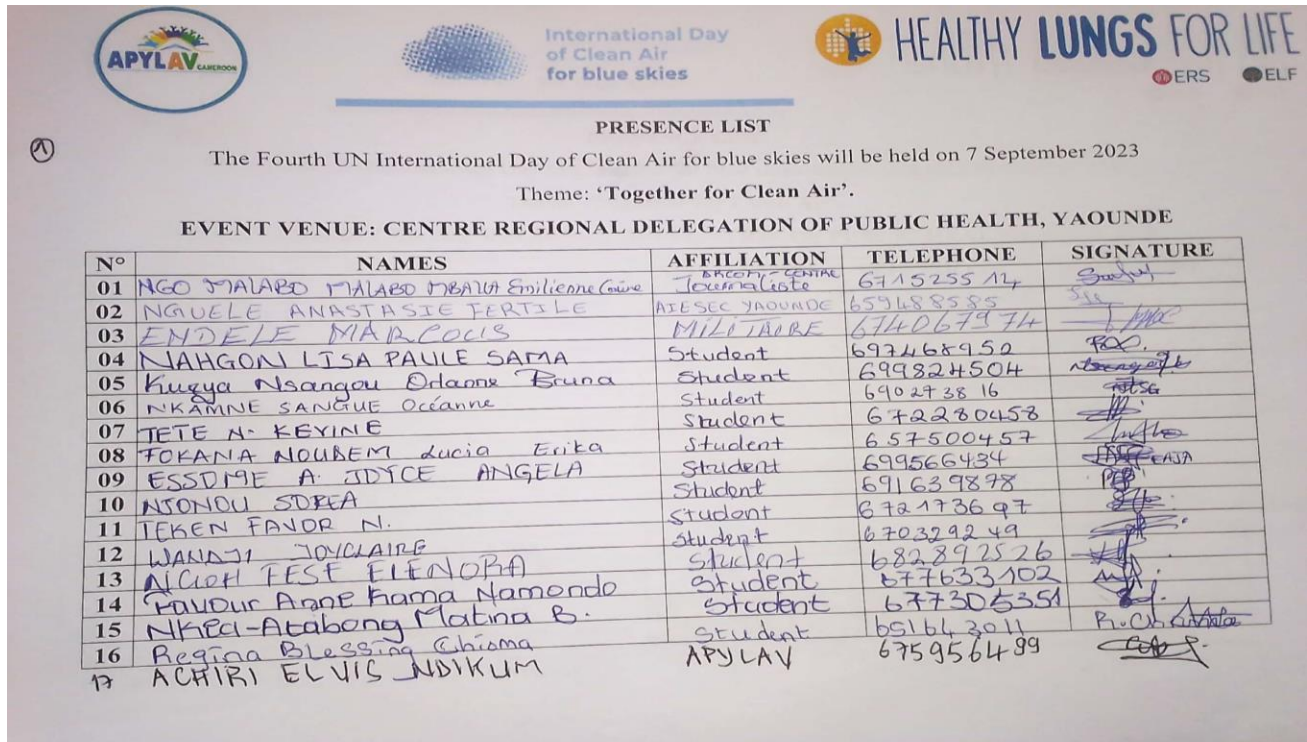 APYLAV CAMEROON
International Day
of Clean Air
for blue skies
HEALTHY LUNGS FOR LIFE
ERS ELF
PRESENCE LIST
1
The Fourth UN International Day of Clean Air for blue skies will be held on 7 September 2023
Theme: ‘Together for Clean Air’.
EVENT VENUE: CENTRE REGIONAL DELEGATION OF PUBLIC HEALTH, YAOUNDE
N° NAMES AFFILIATION TELEPHONE SIGNATURE
01 NGO MALABO MALABO Emilienne Journaliste CENTRE 671525512
02 NGUELE ANASTASIE FERTILE AIESEC YAOUNDE 659488585
03 ENDELE MARCOUS MILITAIRE 674067974
04 NAHGON LISA PAULE SAMA Student 697468952
05 Kugya Nsangou Odanne Bruna Student 699824504
06 NKAMNE SANGUE Océanne Student 690273816
07 TETE N. KEVINE Student 672280458
08 FOKANA NOUBEM Lucia Erika Student 657500457
09 ESSOME A. JOYCE ANGELA Student 699566434
10 NJONOU SOREA Student 691639878
11 TEKEN FAVOR N. Student 672173697
12 WANDJI JOYCLAIRE Student 670329249
13 NGOH FESE ELENORA Student 682892526
14 Favour Anne Kama Namondo Student 677633102
15 Nkea-Atabong Matina B. Student 677305351
16 Regina Blessing Chioma Student 651643011
17 ACHIRI ELVIS NDIKUM APYLAV 675956499